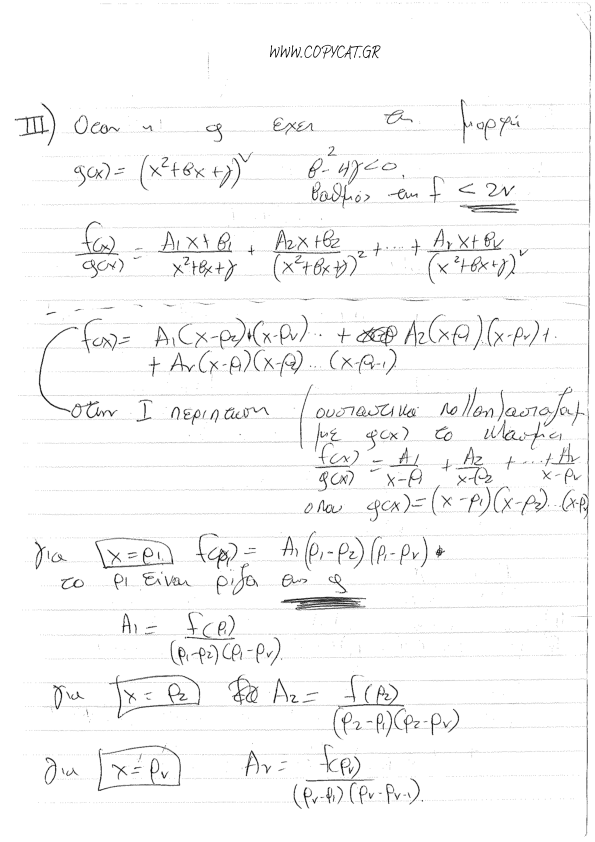 WWW.COPYCAT.GR
III) Οταν η g εχει τη μορφη
g(x) = (x²+βx+γ)^ν β²-4γ<0,
βαθμός της f < 2ν
f(x)/g(x) = (A₁x+β₁)/(x²+βx+γ) + (A₂x+β₂)/(x²+βx+γ)² + ... + (A_νx+β_ν)/(x²+βx+γ)^ν
f(x) = A₁(x-ρ₂)·(x-ρ_ν)... + A₂(x-ρ₁)·(x-ρ_ν)+.
+ A_ν(x-ρ₁)(x-ρ₂)...(x-ρ_ν-1)
στην I περιπτωση (ουσιαστικα
με g(x) το κλασμα
f(x)/g(x) = A₁/(x-ρ₁) + A₂/(x-ρ₂) + ... + A_ν/(x-ρ_ν)
οπου g(x) = (x-ρ₁)(x-ρ₂)...(x-ρ
για x=ρ₁ f(ρ₁) = A₁(ρ₁-ρ₂)(ρ₁-ρ_ν)·
το ρ₁ ειναι ριζα της g
A₁ = f(ρ₁)/((ρ₁-ρ₂)(ρ₁-ρ_ν)).
για x=ρ₂ A₂ = f(ρ₂)/((ρ₂-ρ₁)(ρ₂-ρ_ν))
για x=ρ_ν A_ν = f(ρ_ν)/((ρ_ν-ρ₁)(ρ_ν-ρ_ν-1)).